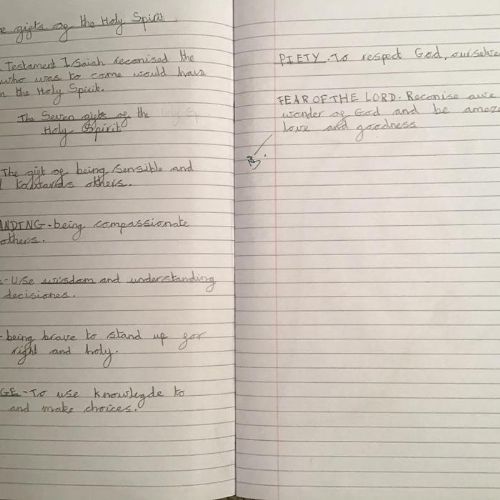 gifts of the Holy Spirit
Testament Isaiah reconised the
who was to come would have
the Holy Spirit.
The Seven gifts of the
Holy Spirit
The gift of being sensible and
towards others.
ANDING - being compassionate
others.
- Use wisdom and understanding
decisiones.
- being brave to stand up for
right and holy.
GE - To use knowlegde to
and make choices.
PIETY - To respect God, ourselve
FEAR OF THE LORD - Reconise awe
wonder of God and be amaze
love and goodness